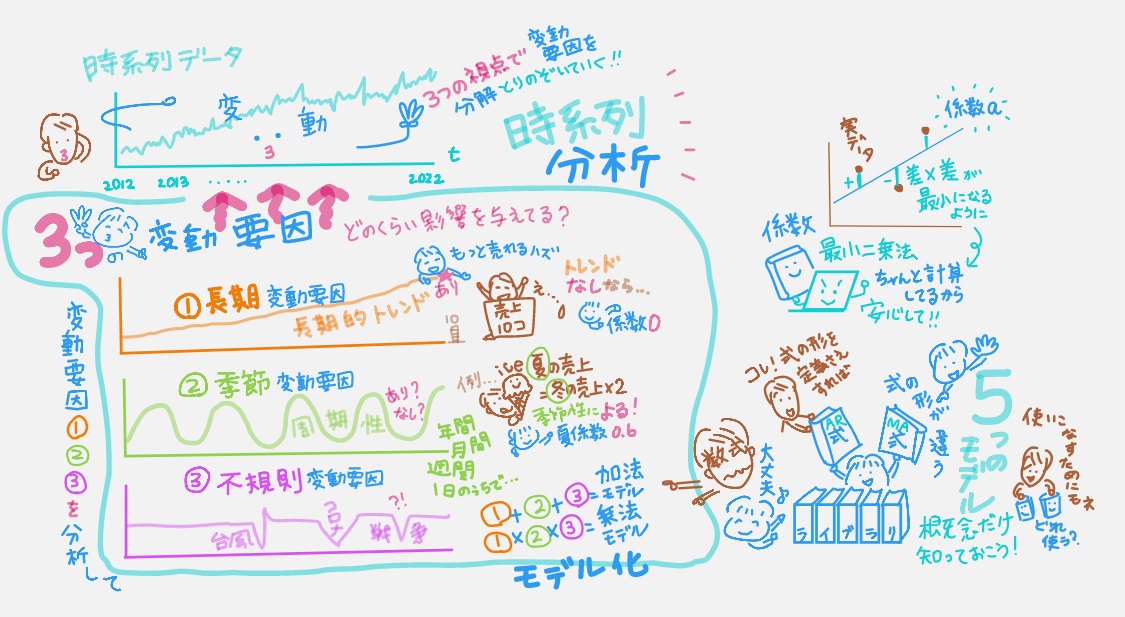 時系列データ
変動
3
3
t
2012 2013 ..... 2022
3つの視点で
変動
要因を
分解
とりのぞいていく!!
時系列
分析
3つ
変動要因
どのくらい影響を与えてる?
① 長期変動要因
長期的トレンド
あり
もっと売れるハズ
売上
10コ
え...
トレンド
なしなら...
係数0
② 季節変動要因
周期性
あり?
なし?
例...
ice 夏の売上
=冬の売上×2
季節性による!
夏係数 0.6
年間
月間
週間
1日のうちで...
③ 不規則変動要因
台風
コロナ
戦争
?!
①+②+③=
加法
モデル
①×②×③=
乗法
モデル
モデル化
変動要因①②③を分析して
実データ
係数a
+
-
差×差が
最小になる
ように
係数
最小二乗法
ちゃんと計算
してるから
安心して!!
コレ!式の形を
定義さえ
すれば
AR
式
MA
式
式の形が違う
数式
大丈夫
ライブラリ
5つのモデル
使いこなすためにもネ
どれ
使う?
概念だけ
知っておこう!